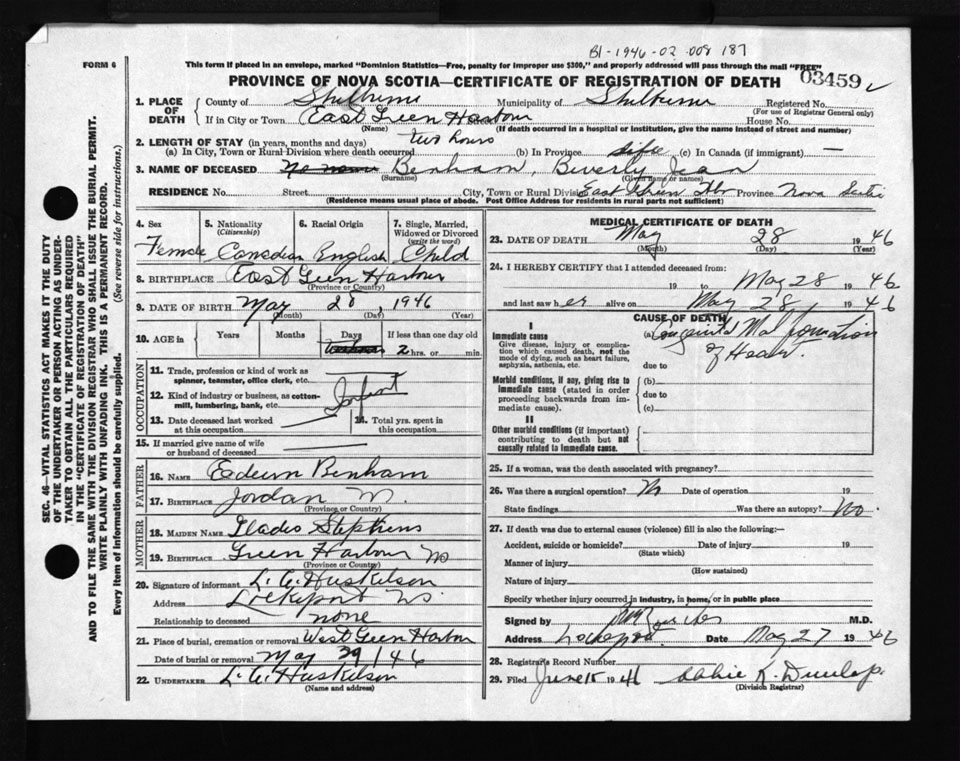 B1-1946-02-008187
FORM 6
This form if placed in an envelope, marked "Dominion Statistics—Free, penalty for improper use $300," and properly addressed will pass through the mail "FREE"
PROVINCE OF NOVA SCOTIA—CERTIFICATE OF REGISTRATION OF DEATH
03459
1. PLACE OF DEATH
County of Shelburne Municipality of Shelburne Registered No.
(For use of Registrar General only)
If in City or Town East Green Harbour Street House No.
(Name) (If death occurred in a hospital or institution, give the name instead of street and number)
2. LENGTH OF STAY (in years, months and days) two hours
(a) In City, Town or Rural Division where death occurred (b) In Province life (c) In Canada (if immigrant) —
3. NAME OF DECEASED No name Benham, Beverly Jean
(Surname) (Given name or names)
RESIDENCE No. Street City, Town or Rural Division East Green Hbr Province Nova Scotia
(Residence means usual place of abode. Post Office Address for residents in rural parts not sufficient)
4. Sex Female
5. Nationality (Citizenship) Canadian
6. Racial Origin English
7. Single, Married, Widowed or Divorced (write the word) Child
8. BIRTHPLACE East Green Harbour
(Province or Country)
9. DATE OF BIRTH May 28, 1946
(Month) (Day) (Year)
10. AGE in Years Months Days If less than one day old
2 hrs. or min.
OCCUPATION
11. Trade, profession or kind of work as spinner, teamster, office clerk, etc.
12. Kind of industry or business, as cotton-mill, lumbering, bank, etc. Infant
13. Date deceased last worked at this occupation
14. Total yrs. spent in this occupation
15. If married give name of wife or husband of deceased
FATHER
16. Name Edwin Benham
17. Birthplace Jordan
(Province or Country)
MOTHER
18. Maiden Name Gladis Stephens
19. Birthplace Green Harbour NS
(Province or Country)
20. Signature of informant L. C. Huskilson
Address Lockeport NS
Relationship to deceased none
21. Place of burial, cremation or removal West Green Harbour
Date of burial or removal May 29/46
22. UNDERTAKER L. C. Huskilson
(Name and address)
MEDICAL CERTIFICATE OF DEATH
23. DATE OF DEATH May 28 1946
(Month) (Day) (Year)
24. I HEREBY CERTIFY that I attended deceased from:
19 to May 28 1946
and last saw her alive on May 28 1946
CAUSE OF DEATH
I
Immediate cause
Give disease, injury or complication which caused death, not the mode of dying, such as heart failure, asphyxia, asthenia, etc.
(a) Congenital Malformation of Heart.
due to
Morbid conditions, if any, giving rise to immediate cause (stated in order proceeding backwards from immediate cause).
(b)
due to
(c)
II
Other morbid conditions (if important) contributing to death but not causally related to immediate cause.
25. If a woman, was the death associated with pregnancy?
26. Was there a surgical operation? No Date of operation 19
State findings Was there an autopsy? No.
27. If death was due to external causes (violence) fill in also the following:—
Accident, suicide or homicide? Date of injury 19
(State which)
Manner of injury
(How sustained)
Nature of injury
Specify whether injury occurred in industry, in home, or in public place
Signed by M.D.
Address Lockeport Date May 27 1946
28. Registrar's Record Number
29. Filed June 15 1946 K. Dunlap.
(Division Registrar)
SEC. 46—VITAL STATISTICS ACT MAKES IT THE DUTY OF THE UNDERTAKER OR PERSON ACTING AS UNDERTAKER TO OBTAIN ALL THE PARTICULARS REQUIRED IN THE "CERTIFICATE OF REGISTRATION OF DEATH" AND TO FILE THE SAME WITH THE DIVISION REGISTRAR WHO SHALL ISSUE THE BURIAL PERMIT.
WRITE PLAINLY WITH UNFADING INK. THIS IS A PERMANENT RECORD.
Every item of information should be carefully supplied. (See reverse side for instructions.)